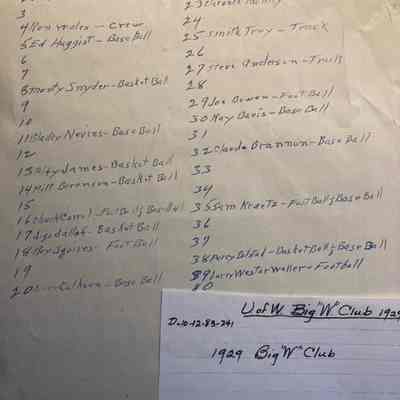 3
4 - Crew
5 Ed Haggist - Base Ball
6
7
8 Monty Snyder - Basket Ball
9
10
11 Blader Nevins - Base Ball
12
13 James - Basket Ball
14 Milt Berenson - Basket Ball
15
16 Chuck - Foot Ball & Base Ball
17 - Basket Ball
18 Roy Squires - Foot Ball
19
20 Calhoun - Base Ball
23
24
25 Smith Troy - Track
26
27 Steve Anderson - Track
28
29 Joe Bowen - Foot Ball
30 Ray Davis - Base Ball
31
32 Claude Brannon - Base Ball
33
34
35 Sam Kraetz - Foot Ball & Base Ball
36
37
38 Percy - Basket Ball & Base Ball
39 Larry Westerweller - Football
40
U of W Big "W" Club 1929
D-10-12-83-241
1929 Big "W" Club